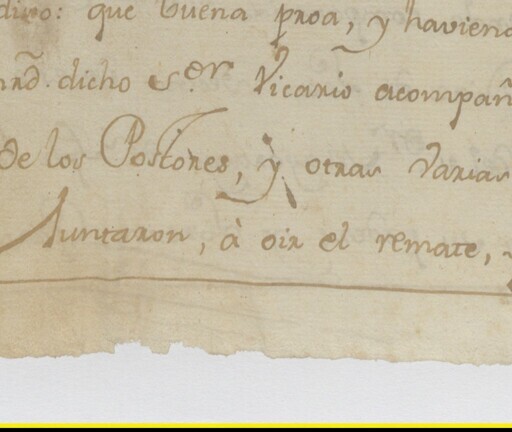 dixo: que buena proa, y haviend
dicho S.or Vicario acompañ
de los Postores, y otras varias
Juntaron, à oir el remate,